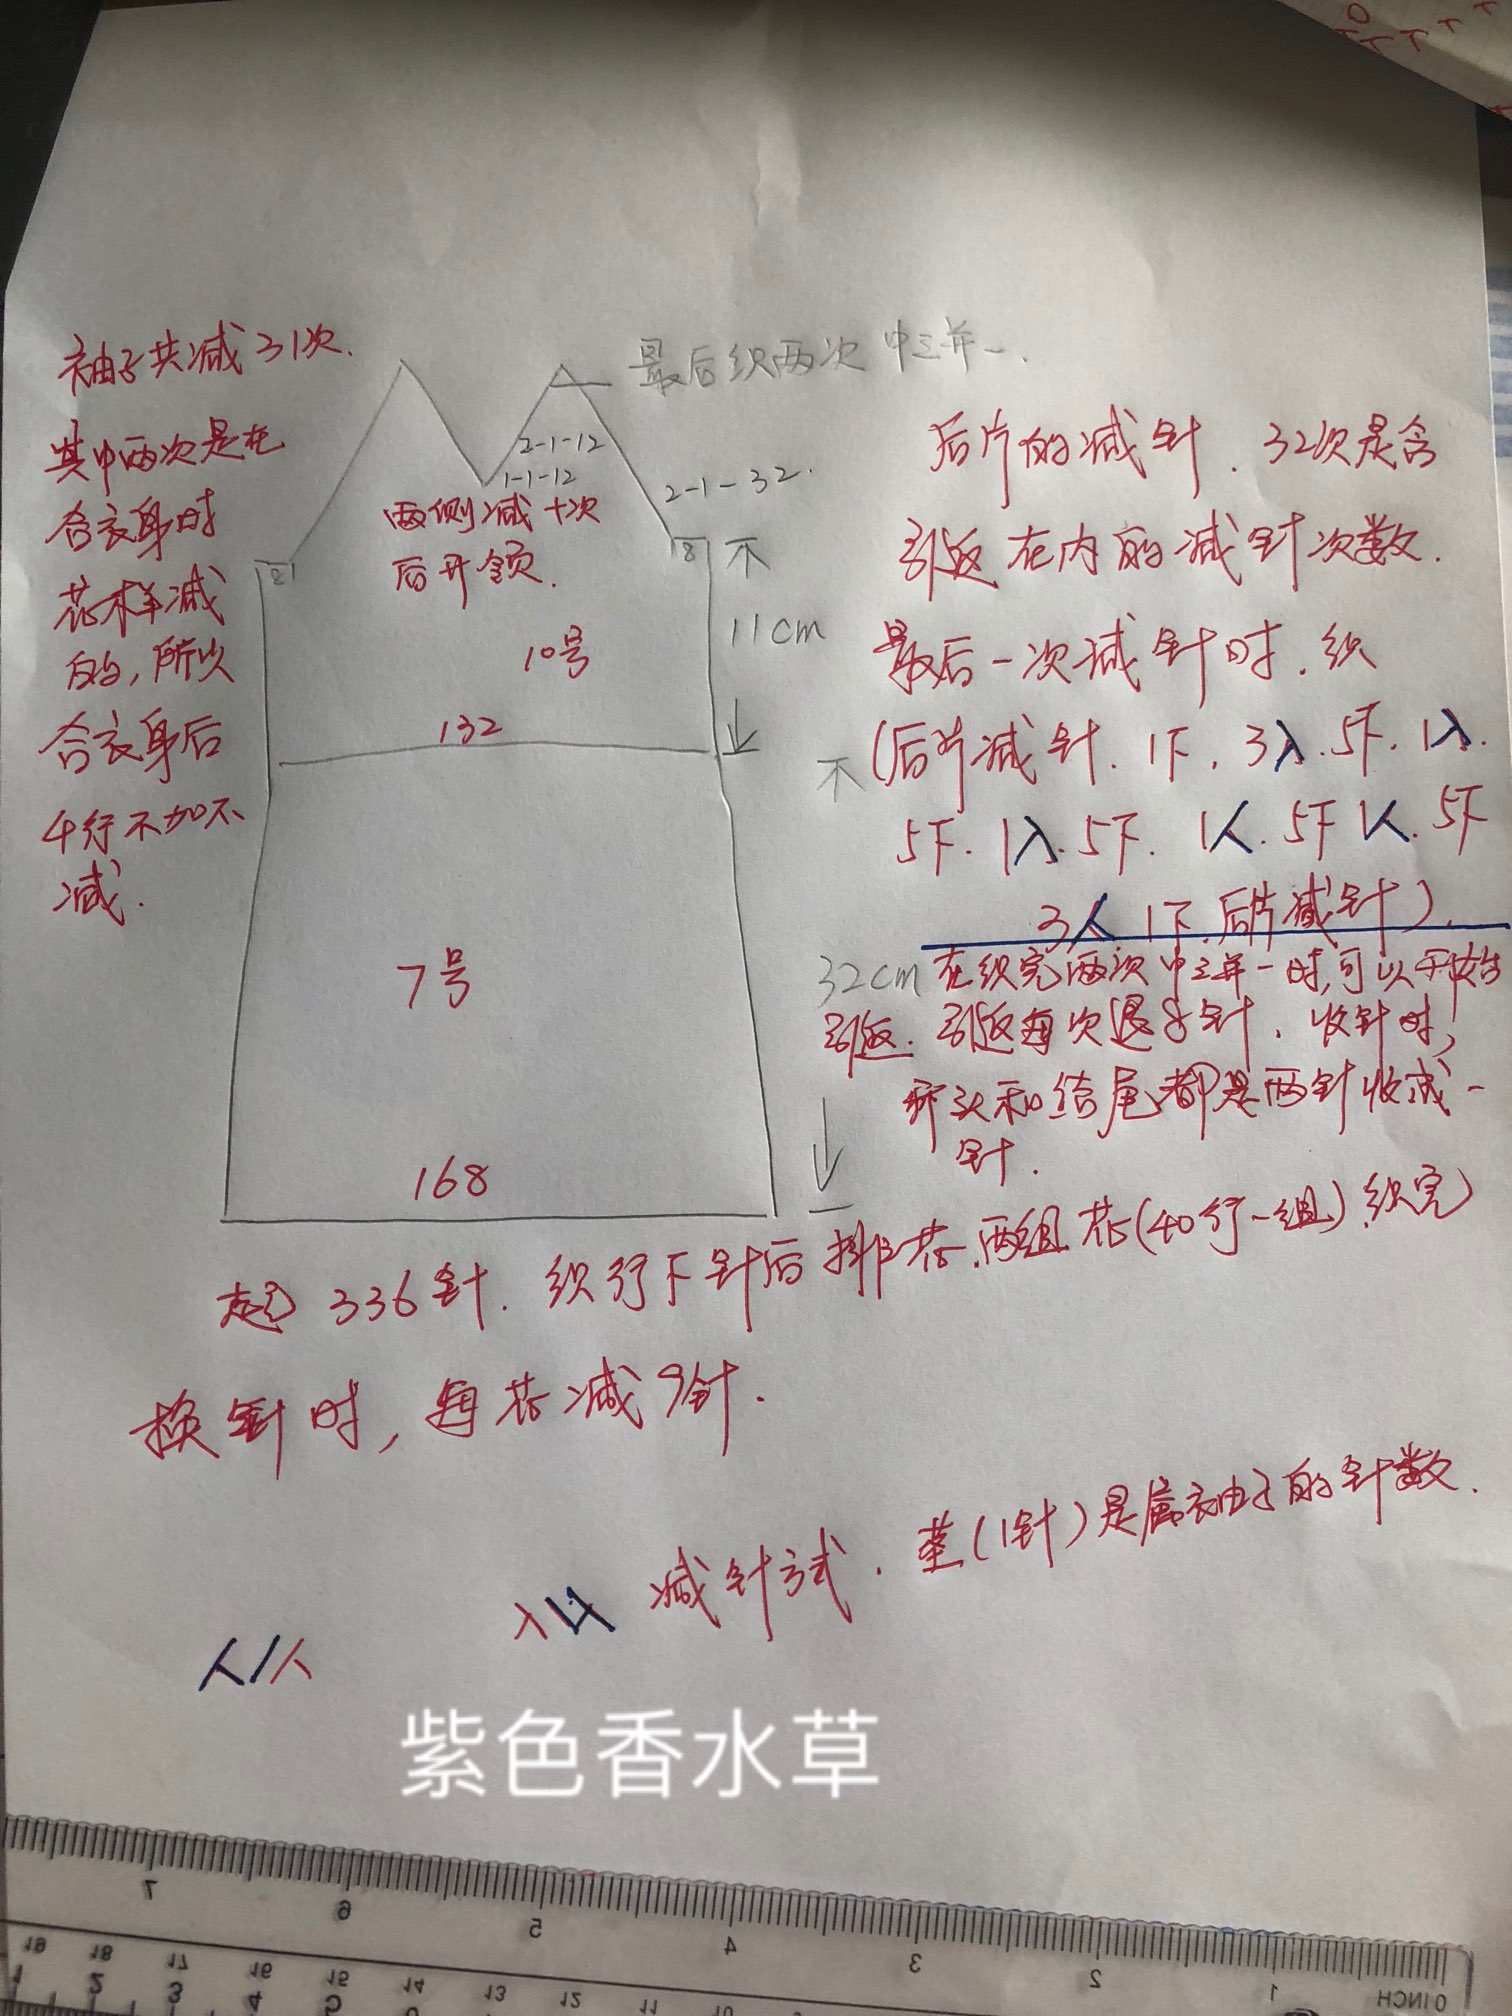 袖子共减31次.
其中两次是在
合衣身时
花样减
的,所以
合衣身后
4行不加不
减.
最后织两次中三并一.
2-1-12
1-1-12
2-1-32.
两侧减十次
后开领.
8
8
11cm
10号
132
7号
32cm
168
后片的减针.32次是含
引返在内的减针次数.
最后一次减针时.织
(后片减针.1下.3入.5下.1入.
5下.1入.5下.1人.5下1人.5下
3人1下.后片减针).
在织完两次中三并一时,可以开始
引返.引返每次退8针.收针时,
开头和结尾都是两针收成一
针.
起336针.织行下针后排花.两组花(40行一组).织完
换针时,每花减9针.
减针方式.茎(1针)是属袖子的针数.
人/人
紫色香水草
7
6
5
4
3
2
1
0 INCH
19 18 17 16 15 14 13 12 11 10
1 2 3 4 5